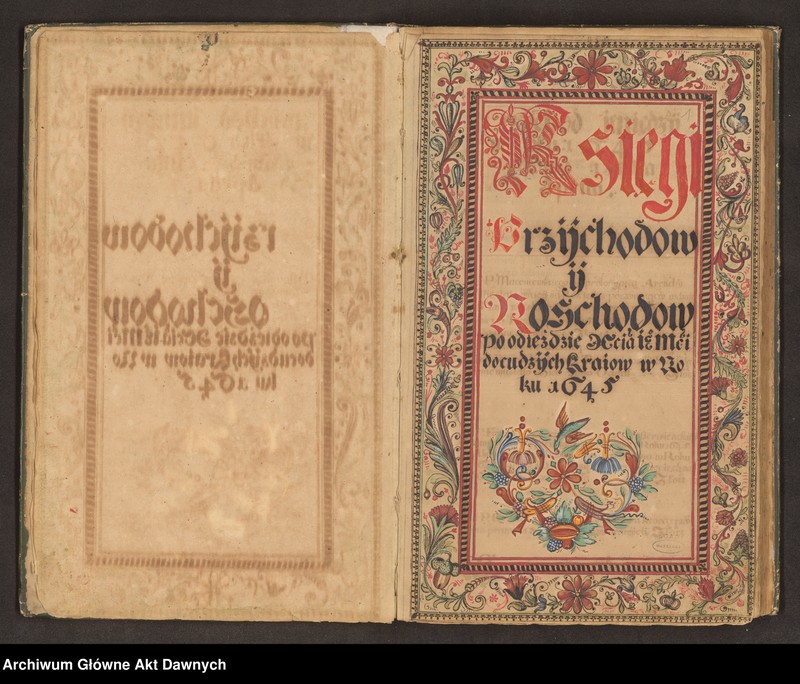 Ksiegi
Przÿchodow
ÿ
Roschodow
po odiezdzie Xcia
do cudzÿch Kraiow w Ro
ku 1645
Archiwum Główne Akt Dawnych